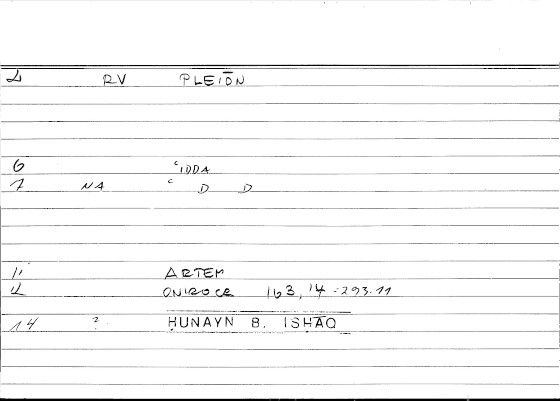 4 RV PLEIŌN
6 ʿIDDA
7 NA ʿ D D
11 ARTEM
12 ONIROCR 163,14 = 293.11
14 ? ḤUNAYN B. ISḤĀQ